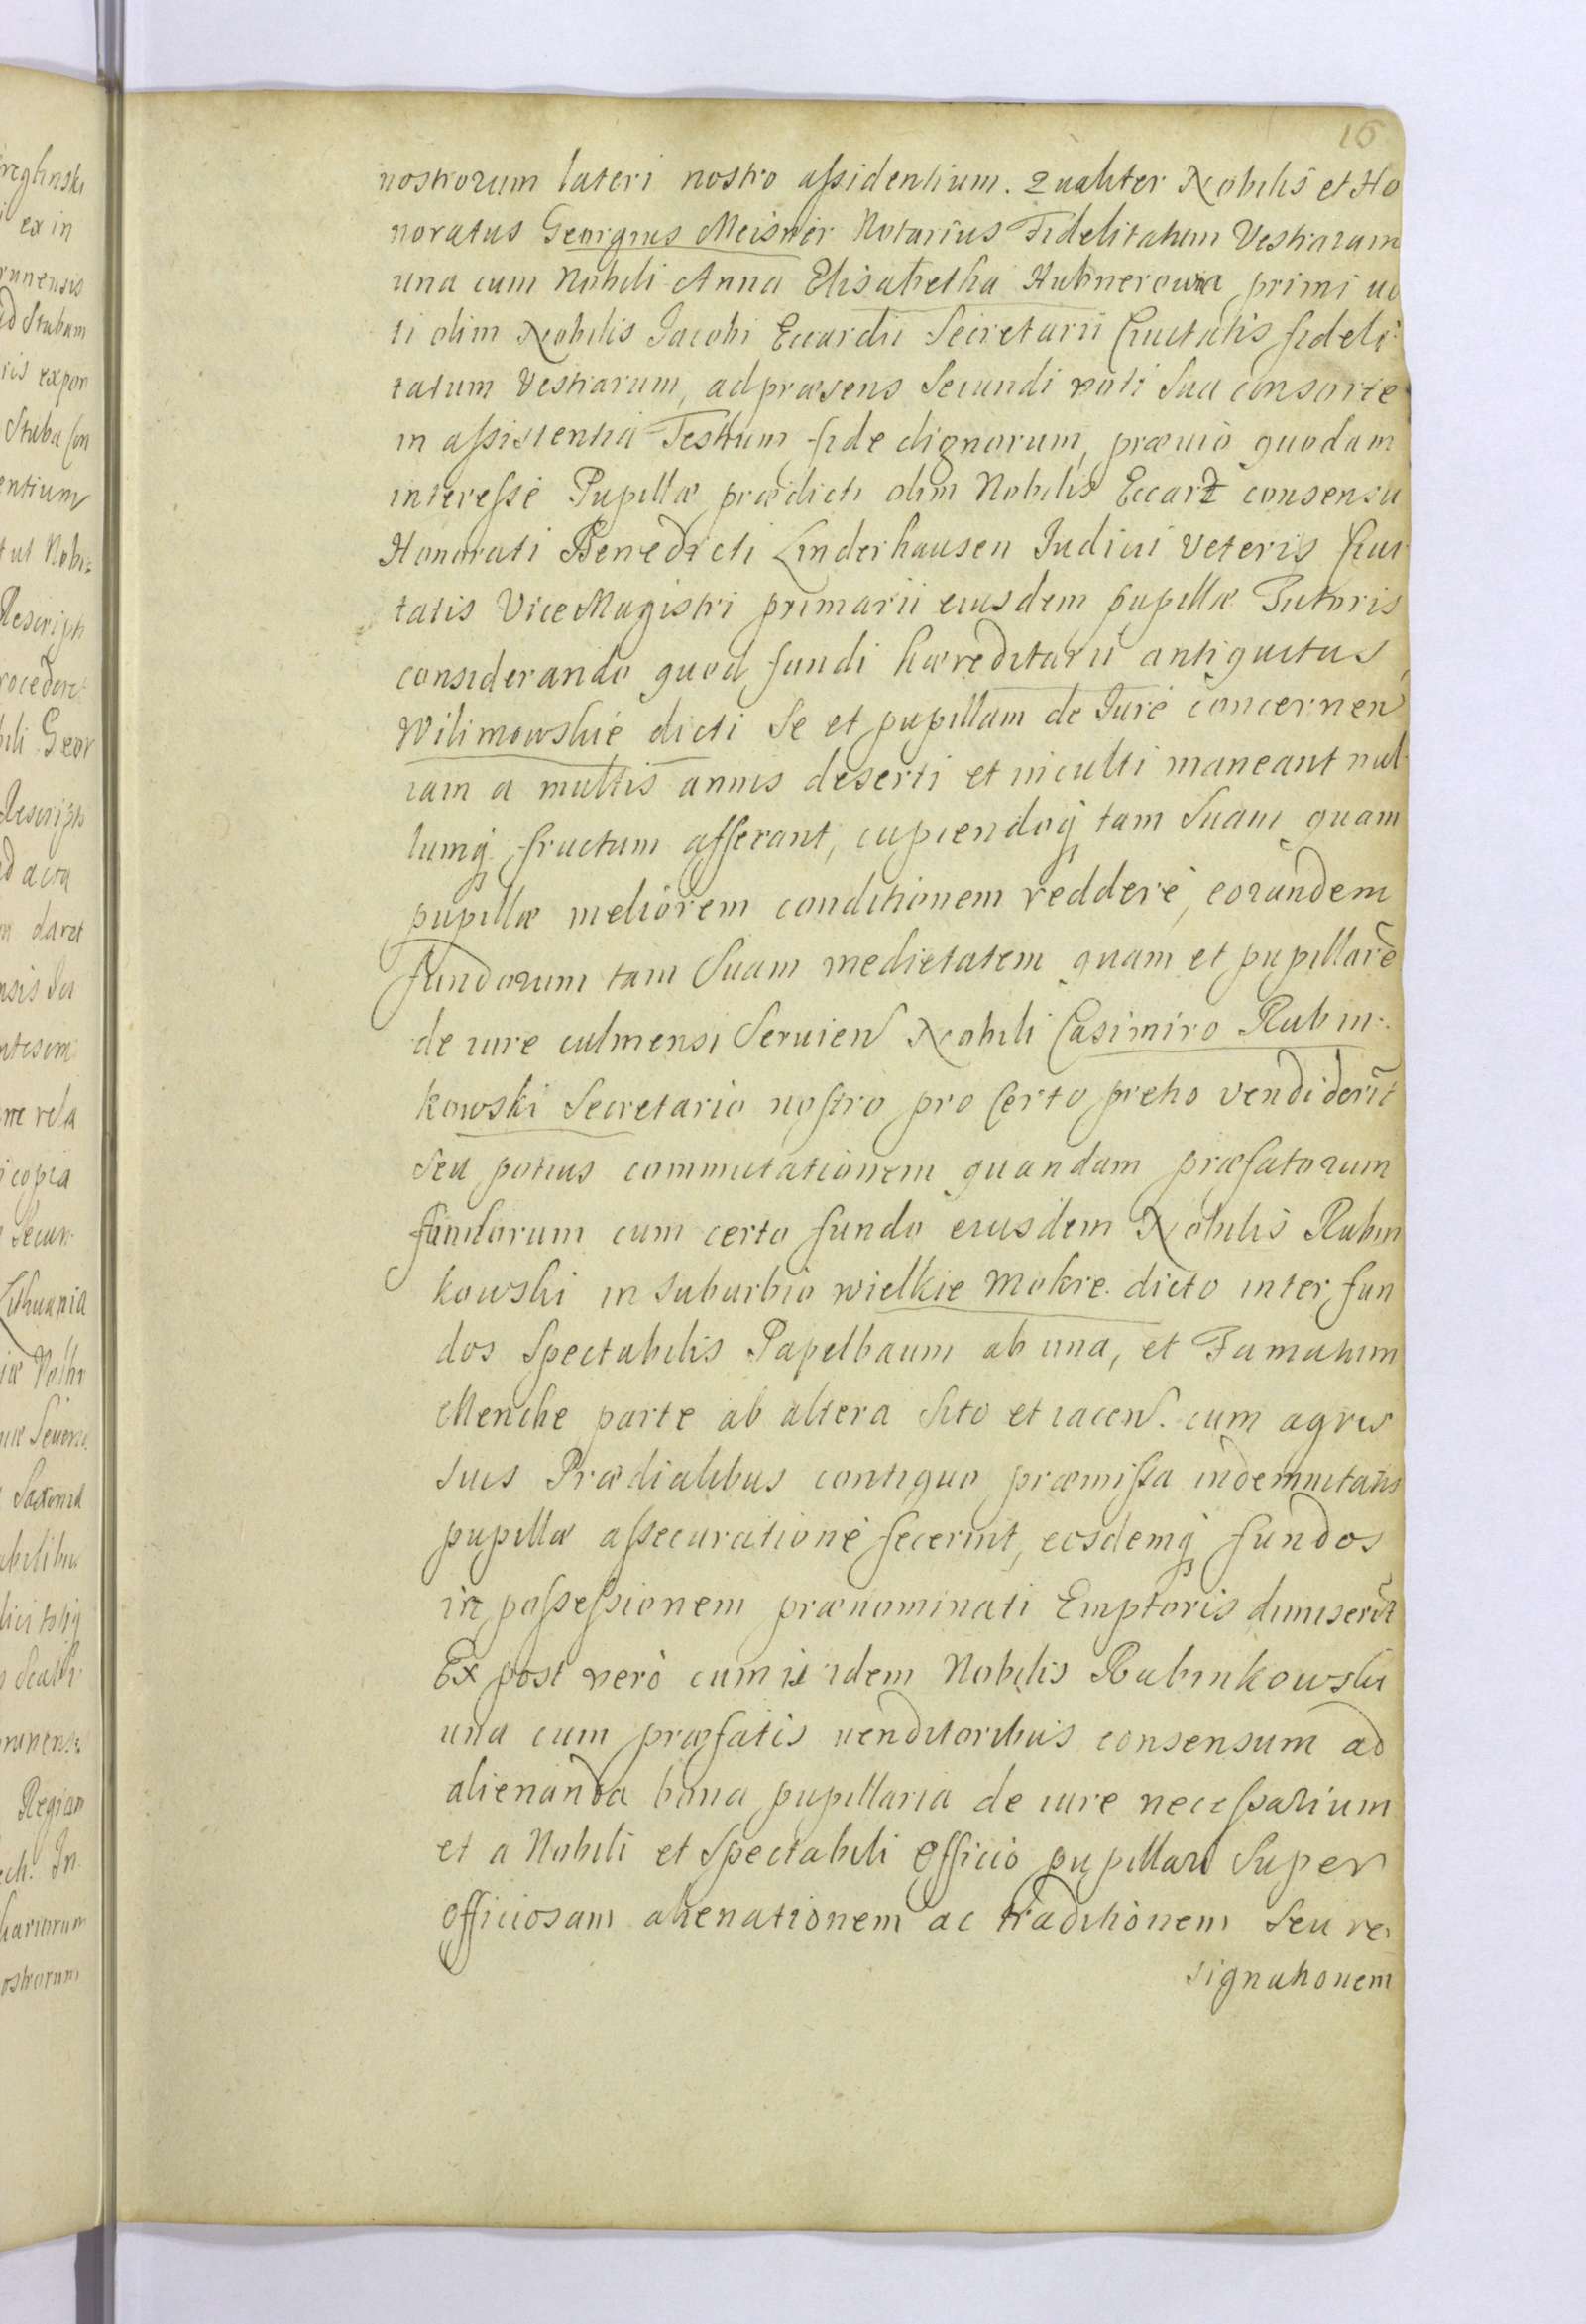 16
nostrorum lateri nostro assidentium. Qualiter Nobilis et Ho
noratus Georgius Meisner Notarius Fidelitatum Vestrarum
una cum Nobili Anna Elisabetha Hubnerowna primi uo
ti olim Nobilis Jacobi Eccardii Secretarii Ciuitatis fideli
tatum Vestrarum, ad præsens Secundi voti Sua consorte
in assistentia Testium fide dignorum, præuio quodam
interesse Pupillæ prædicti olim Nobilis Eccard consensu
Honorati Benedicti Linderhausen Judicii Veteris Ciui
tatis Vice Magistri primarii eiusdem pupillæ Tutoris
considerando quod fundi hæreditarii antiquitus
Wilimowskie dicti Se et pupillam de Jure concernen
iam a multis annis deserti et inculti maneant nul
lumq fructum afferant, cupiendoq tam Suam quam
pupillæ meliorem conditionem reddere, eorundem
fundorum tam Suam medietatem quam et pupillarē
de iure culmensi Seruien Nobili Casimiro Rubin-
kowski Secretario nostro pro Certo pretio vendiderīt
Seu potius commutationem quandam præfatorum
fundorum cum certo fundo eiusdem Nobilis Rubin
kowski in suburbio wielkie Mokre dicto inter fun
dos Spectabilis Papelbaum ab una, et Famatum
Menche parte ab altera Sito et iacen. cum agris
suis Prædialibus contiguo præmissa indemnitatis
pupillæ assecuratione fecerint, eosdemq fundos
in possessionem prænominati Emptoris dimiserīt
Ex post verò cum is idem Nobilis Rubinkowski
una cum præfatis uenditoribus consensum ad
alienanda bona pupillaria de iure necessarium
et a Nobili et Spectabili Officio pupillari Super
officiosam alienationem ac traditionem Seu re
signationem